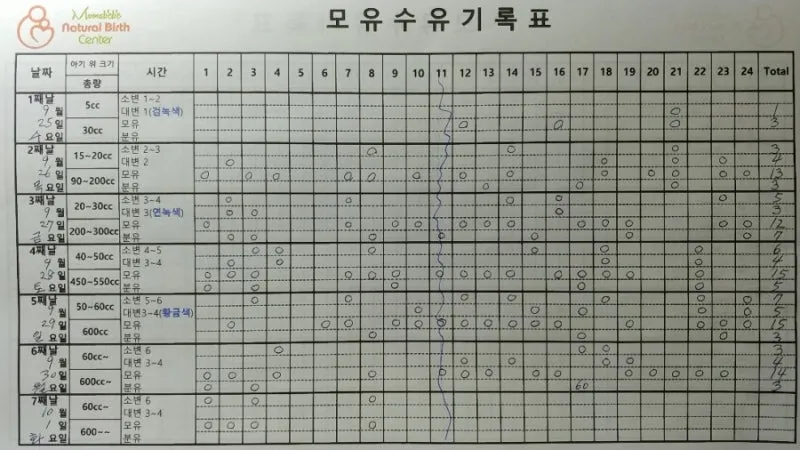 Mamabible
Natural Birth
Center
모유수유기록표
날짜 아기 위 크기 총량 시간 1 2 3 4 5 6 7 8 9 10 11 12 13 14 15 16 17 18 19 20 21 22 23 24 Total
1째날 5cc 소변 1~2
9월 대변 1(검녹색) ○ 1
25일 30cc 모유 ○ ○ ○ 3
수요일 분유
2째날 15~20cc 소변 2~3 ○ ○ ○ 3
9월 대변 2 ○ ○ ○ ○ 4
26일 90~200cc 모유 ○ ○ ○ ○ ○ ○ ○ ○ ○ ○ ○ ○ ○ 13
목요일 분유 ○ ○ ○ 3
3째날 20~30cc 소변 3~4 ○ ○ ○ ○ ○ 5
9월 대변 3(연녹색) ○ ○ ○ 3
27일 200~300cc 모유 ○ ○ ○ ○ ○ ○ ○ ○ ○ ○ ○ ○ 12
금요일 분유 ○ ○ ○ ○ ○ ○ ○ 7
4째날 40~50cc 소변 4~5 ○ ○ ○ ○ ○ ○ 6
9월 대변 3~4 ○ ○ ○ ○ 4
28일 450~550cc 모유 ○ ○ ○ ○ ○ ○ ○ ○ ○ ○ ○ ○ ○ ○ ○ 15
토요일 분유 ○ ○ ○ ○ ○ 5
5째날 50~60cc 소변 5~6 ○ ○ ○ ○ ○ ○ ○ 7
9월 대변3~4(황금색) ○ ○ ○ ○ ○ 5
29일 600cc 모유 ○ ○ ○ ○ ○ ○ ○ ○ ○ ○ ○ ○ ○ ○ ○ 15
일요일 분유 ○ ○ ○ 3
6째날 60cc~ 소변 6 ○ ○ ○ 3
9월 대변 3~4 ○ ○ ○ ○ 4
30일 600cc~ 모유 ○ ○ ○ ○ ○ ○ ○ ○ ○ ○ ○ ○ ○ ○ 14
월요일 분유 ○ ○ 60 3
7째날 60cc~ 소변 6 ○ ○ ○
10월 대변 3~4
1일 600~~ 모유 ○ ○ ○ ○
화요일 분유